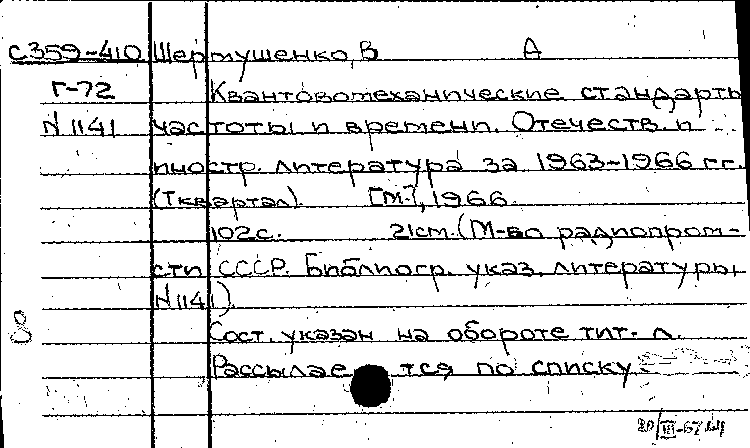 С359-410 Шермушенко, В А
Г-72 Квантовомеханические стандарты
N 1141 частоты и времени. Отечеств. и
иностр. литература за 1963-1966 гг.
(I квартал). [М.], 1966.
102 с. 21 см. (М-во радиопром-
сти СССР. Библиогр. указ. литературы,
N 1141).
Сост. указан на обороте тит. л.
Рассылается по списку.
8